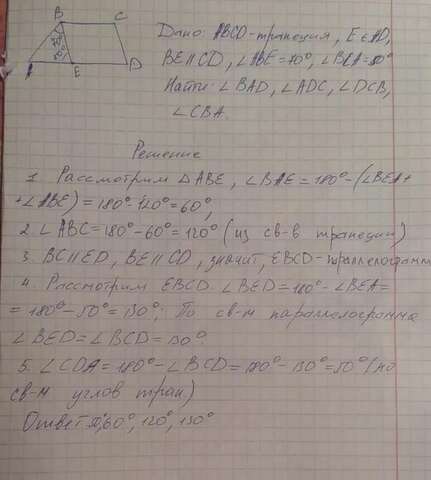 B C
A E D
70°
50°
Дано: ABCD-трапеция, E∈AD,
BE∥CD, ∠ABE=70°, ∠BEA=50°
Найти: ∠BAD, ∠ADC, ∠DCB,
∠CBA.
Решение
1. Рассмотрим △ABE, ∠BAE=180°-(∠BEA+
+∠ABE)=180°-120°=60°;
2. ∠ABC=180°-60°=120° (из св-в трапеции)
3. BC∥ED, BE∥CD, значит, EBCD-параллелограмм
4. Рассмотрим EBCD. ∠BED=180°-∠BEA=
=180°-50°=130°; По св-м параллелограмма
∠BED=∠BCD=130°
5. ∠CDA=180°-∠BCD=180°-130°=50° (по
св-м углов трап.)
Ответ: 50°, 60°, 120°, 130°